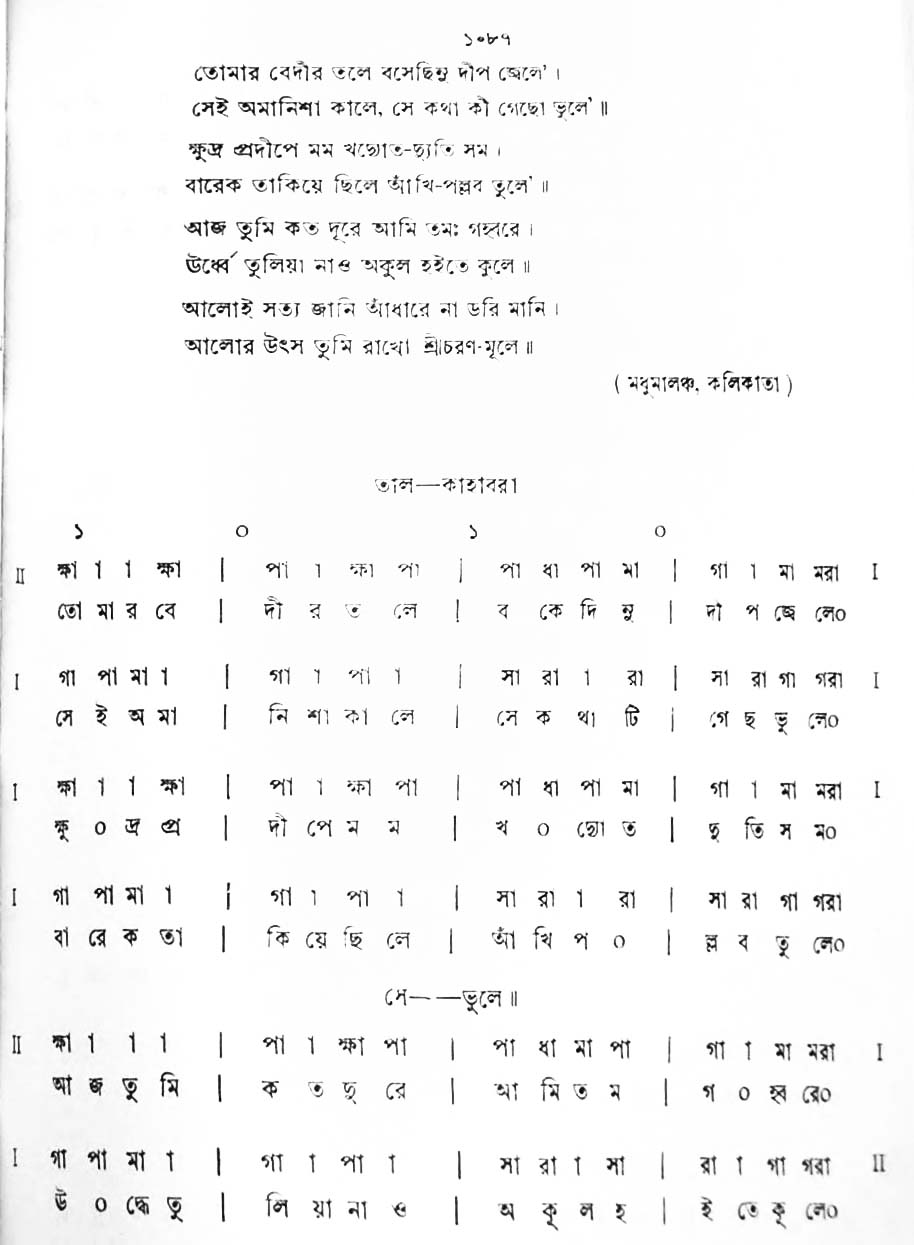 ১০৮৭
তোমার বেদীর তলে বসেছিনু দীপ জ্বেলে’।
সেই অমানিশা কালে, সে কথা কী গেছো ভুলে’॥
ক্ষুদ্র প্রদীপে মম খদ্যোত-দ্যুতি সম।
বারেক তাকিয়ে ছিলে আঁখি-পল্লব তুলে’॥
আজ তুমি কত দূরে আমি তমঃ গহ্বরে।
ঊর্ধ্বে তুলিয়া নাও অকুল হইতে কুলে॥
আলোই সত্য জানি আঁধারে না ডরি মানি।
আলোর উৎস তুমি রাখো শ্রীচরণ-মূলে॥
( মধুমালঞ্চ, কলিকাতা )
তাল—কাহাবরা
১ ০ ১ ০
II ক্ষা া া ক্ষা | পা া ক্ষা পা | পা ধা পা মা | গা া মা মরা I
তো মা র বে | দী র ত লে | ব কে দি নু | দী প জ্বে লে০
I গা পা মা া | গা া পা া | সা রা া রা | সা রা গা গরা I
সে ই অ মা | নি শা কা লে | সে ক থা টি | গে ছ ভু লে০
I ক্ষা া া ক্ষা | পা া ক্ষা পা | পা ধা পা মা | গা া মা মরা I
ক্ষু ০ দ্র প্র | দী পে ম ম | খ ০ দ্যো ত | দ্যু তি স ম০
I গা পা মা া | গা া পা া | সা রা া রা | সা রা গা গরা
বা রে ক তা | কি য়ে ছি লে | আঁ খি প ০ | ল্ল ব তু লে০
সে— —ভুলে॥
II ক্ষা া া া | পা া ক্ষা পা | পা ধা মা পা | গা া মা মরা I
আ জ তু মি | ক ত দূ রে | আ মি ত ম | গ ০ হ্ব রে০
I গা পা মা া | গা া পা া | সা রা া সা | রা া গা গরা II
ঊ ০ র্দ্ধে তু | লি য়া না ও | অ কূ ল হ | ই তে কূ লে০